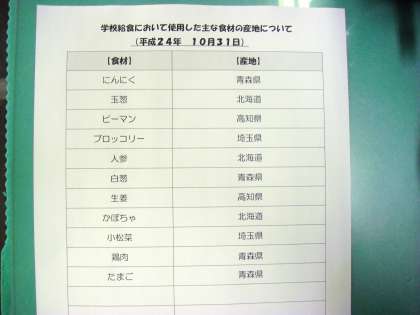 学校給食において使用した主な食材の産地について
（平成２４年　１０月３１日）
【食材】 【産地】
にんにく 青森県
玉葱 北海道
ピーマン 高知県
ブロッコリー 埼玉県
人参 北海道
白葱 青森県
生姜 高知県
かぼちゃ 北海道
小松菜 埼玉県
鶏肉 青森県
たまご 青森県